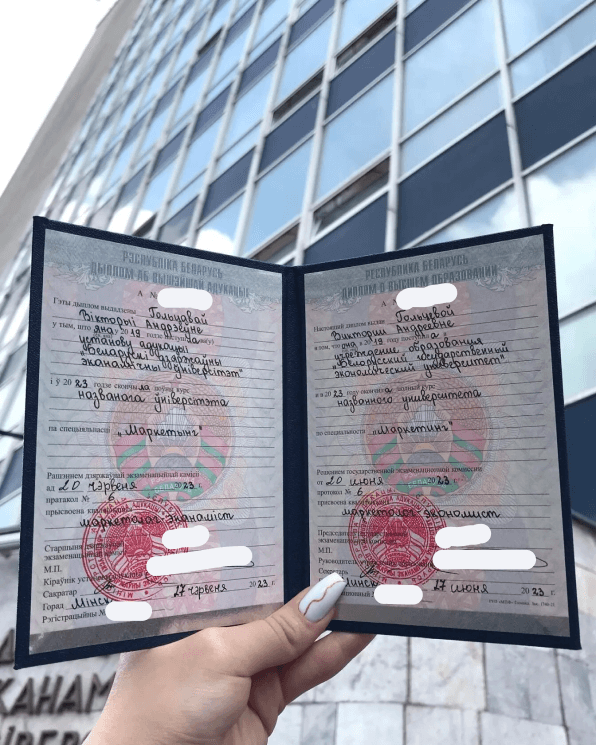 РЭСПУБЛІКА БЕЛАРУСЬ
ДЫПЛОМ АБ ВЫШЭЙШАЙ АДУКАЦЫІ
А №
Гэты дыплом выдадзены Гольцавай
Вікторыі Андрэеўне
у тым, што яна у 2019 годзе паступіла
установу адукацыі
"Беларускі дзяржаўны
эканамічны ўніверсітэт"
і ў 2023 годзе скончыла поўны курс
названага ўніверсітэта
па спецыяльнасці „Маркетынг"
Рашэннем дзяржаўнай экзаменацыйнай камісіі
ад 20 чэрвеня 2023 г.
пратакол № 6
прысвоена кваліфікацыя
маркетолаг-эканаміст
Старшыня дзяржаўнай
экзаменацыйнай
М.П.
Кіраўнік установы
Сакратар
Горад Мінск 27 чэрвеня 2023 г.
Рэгістрацыйны №
РЕСПУБЛИКА БЕЛАРУСЬ
ДИПЛОМ О ВЫСШЕМ ОБРАЗОВАНИИ
А
Настоящий диплом выдан Гольцевой
Виктории Андреевне
в том, что она в 2019 году поступила
учреждение образования
„Белорусский государственный
экономический университет"
и в 2023 году окончила полный курс
названного университета
по специальности „Маркетинг"
Решением государственной экзаменационной комиссии
от 20 июня 2023 г.
протокол № 6
присвоена квалификация
маркетолог-экономист
Председатель
экзаменационной
М.П.
Руководитель
Секретарь
Минск 27 июня 2023 г.
КАНАМ